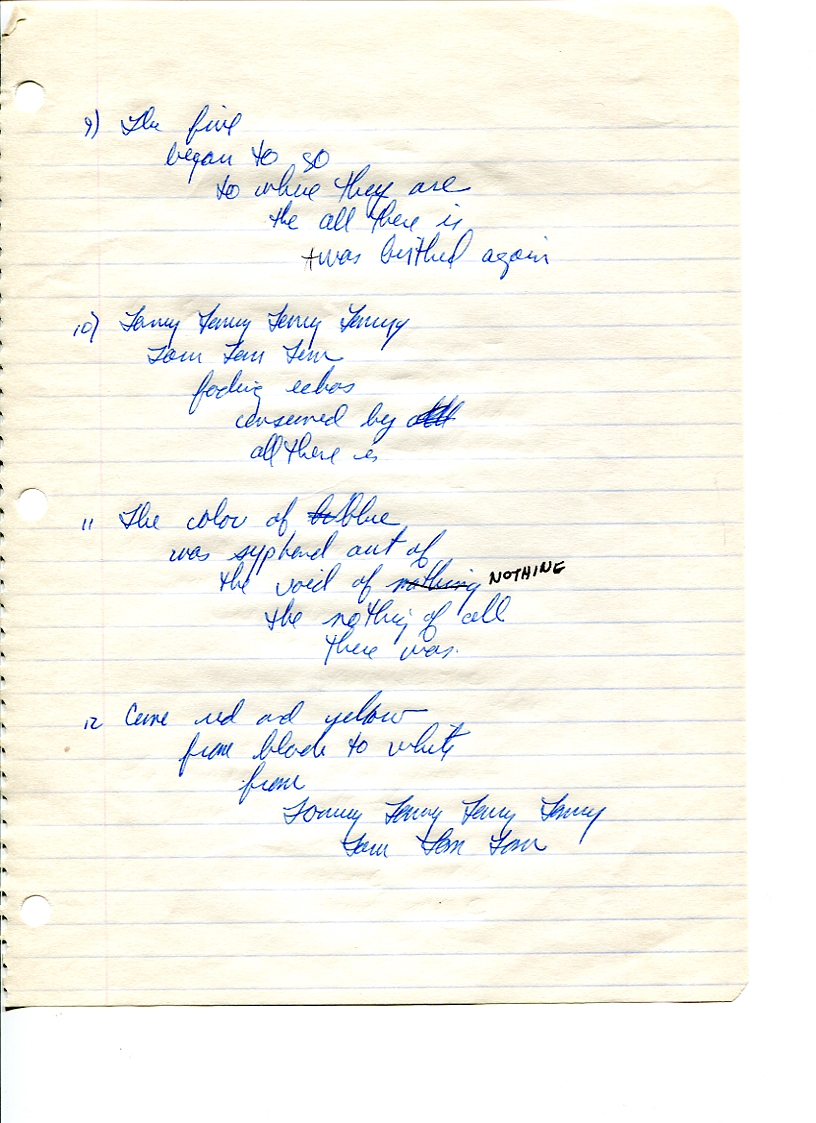 9) The five
began to so
to where they are
the all there is
was birthed again
10) Tommy Tommy Tommy Tommy
Tom Tom Tom
fading echos
consumed by
all there is
11 The color of blue
was syphend out of
the void of nothing NOTHING
the nothing of all
there was.
12 Came red and yellow
from black to white
from
Tommy Tommy Tommy Tommy
Tom Tom Tom